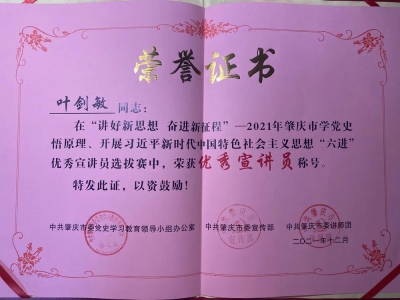 荣誉证书
叶剑敏 同志：
在“讲好新思想 奋进新征程”—2021年肇庆市学党史
悟原理、开展习近平新时代中国特色社会主义思想“六进”
优秀宣讲员选拔赛中，荣获优秀宣讲员称号。
特发此证，以资鼓励！
中共肇庆市委党史学习教育领导小组办公室 中共肇庆市委宣传部 中共肇庆市委讲师团
二〇二一年十二月